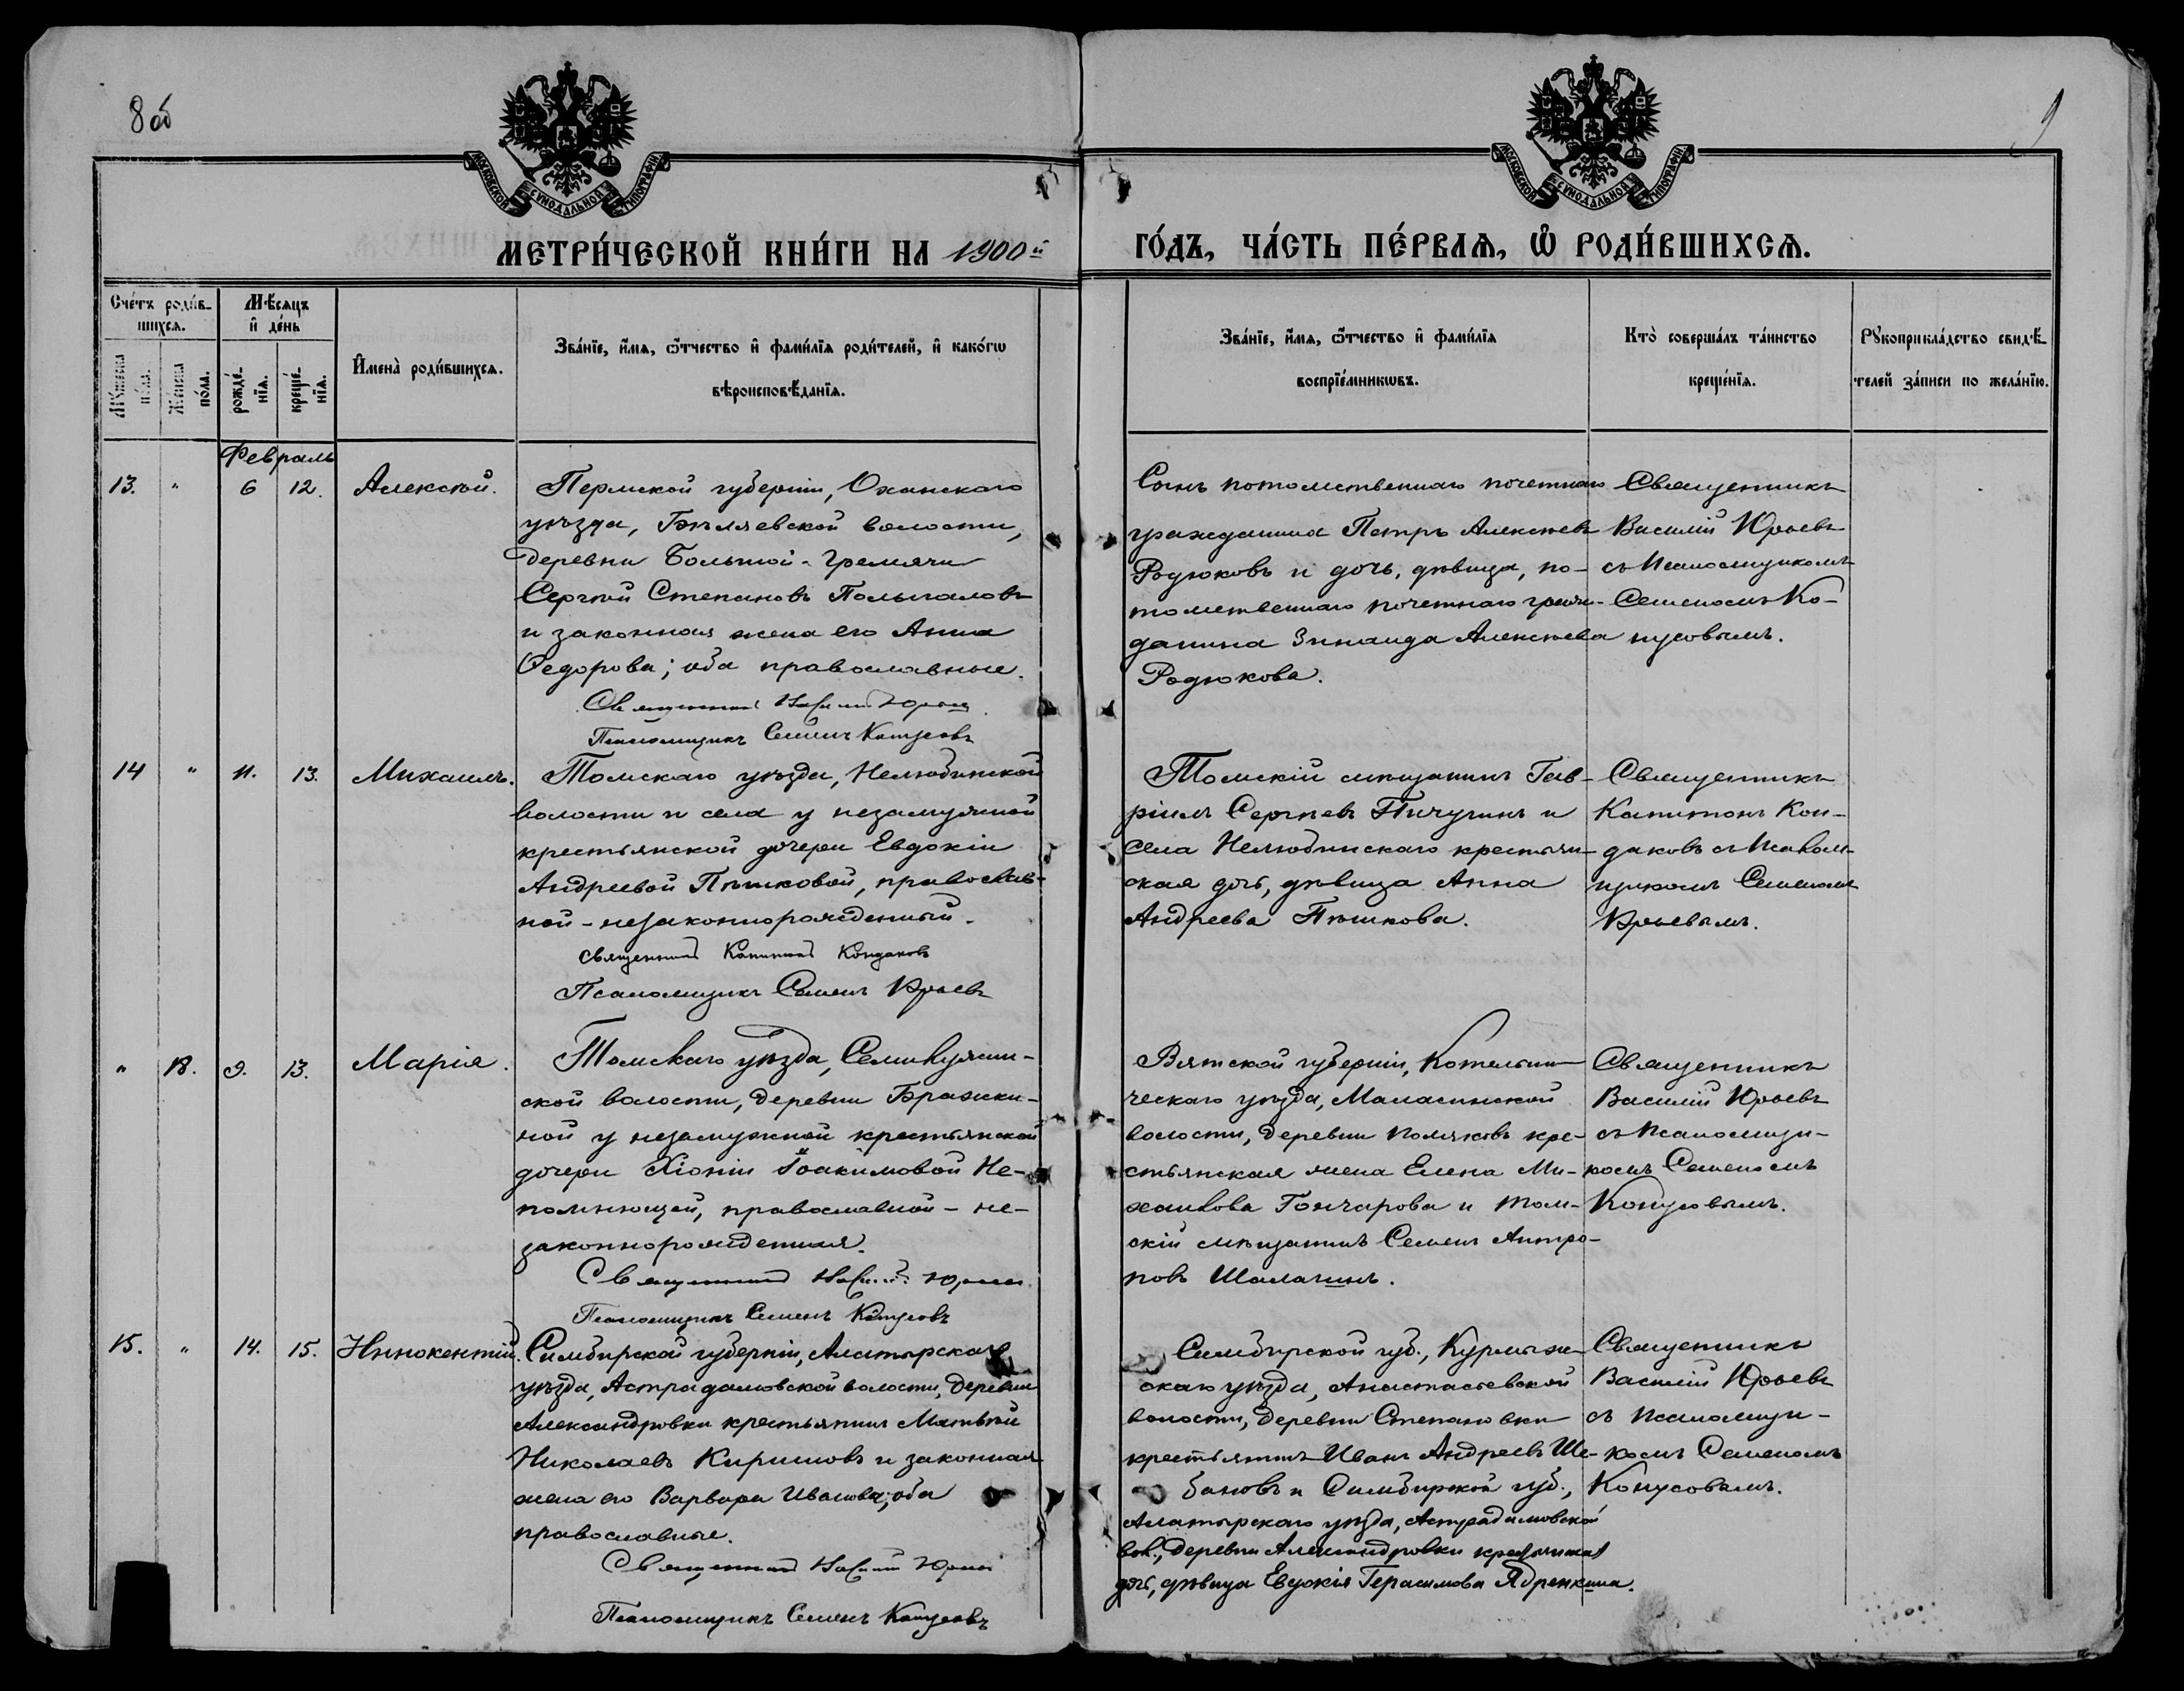 8 об
9
МОСКОВСКОЙ СѴНОДАЛЬНОЙ ТИПОГРАФІИ
МОСКОВСКОЙ СѴНОДАЛЬНОЙ ТИПОГРАФІИ
МЕТРИ́ЧЕСКОЙ КНИ́ГИ НА 1900й
ГО́ДЪ, ЧА́СТЬ ПЕ́РВАѦ, Ѡ҆ РОДИ́ВШИХСѦ.
Сче́тъ роди́в-
шихсѧ.
Мꙋ́жеска по́ла.
Же́нска по́ла.
Мѣ́сѧцъ
и҆ де́нь
рожде́-
нїѧ.
креще́-
нїѧ.
И҆мена̀ роди́вшихсѧ.
Зва́нїе, и҆́мѧ, ѻ҆́тчество и҆ фамѝлїѧ роди́телей, и҆ како́гѡ
вѣроисповѣ́данїѧ.
Зва́нїе, и҆́мѧ, ѻ҆́тчество и҆ фамѝлїѧ
воспрїе́мникѡвъ.
Кто̀ соверша́лъ та́инство
креще́нїѧ.
Рꙋкоприкла́дство свидѣ́-
телей за́писи по жела́нїю.
Февраль
13. " 6 12. Алексѣй.
Пермской губерніи, Оханскаго
уѣзда, Бѣляевской волости,
деревни Большой-Гремячи
Сергѣй Степановъ Полыгаловъ
и законная жена его Анна
Ѳедорова; оба православные.
Священникъ Василій Юрьевъ
Псаломщикъ Семенъ Копусовъ
Сынъ потомственнаго почетнаго
гражданина Петръ Алексѣевъ
Родюковъ и дочь, дѣвица, по-
томственнаго почетнаго граж-
данина Зинаида Алексѣева
Родюкова.
Священникъ
Василій Юрьевъ
съ псаломщикомъ
Семеномъ Ко-
пусовымъ.
14 " 11. 13. Михаилъ.
Томскаго уѣзда, Нелюбинской
волости и села у незамужней
крестьянской дочери Евдокіи
Андреевой Пѣшковой, православ-
ной - незаконнорожденный.
Священникъ Капитонъ Кондаковъ
Псаломщикъ Семенъ Юрьевъ
Томскій мѣщанинъ Гав-
ріилъ Сергѣевъ Пичугинъ и
села Нелюбинскаго крестьян-
ская дочь, дѣвица Анна
Андреева Пѣшкова.
Священникъ
Капитонъ Кон-
даковъ съ псалом-
щикомъ Семеномъ
Юрьевымъ.
" 18. 9. 13. Марія.
Томскаго уѣзда, Семилужин-
ской волости, деревни Бражки-
ной у незамужней крестьянской
дочери Хіоніи Іоакимовой Не-
помнющей, православной - не-
законнорожденная.
Священникъ Василій Юрьевъ
Псаломщикъ Семенъ Копусовъ
Вятской губерніи, Котельни-
ческаго уѣзда, Маласинской
волости, деревни Поляковъ кре-
стьянская жена Елена Ми-
хаилова Гончарова и том-
скій мѣщанинъ Семенъ Антро-
повъ Шалагинъ.
Священникъ
Василій Юрьевъ
съ псаломщи-
комъ Семеномъ
Копусовымъ.
15. " 14. 15. Иннокентій.
Симбирской губерніи, Алатырскаго
уѣзда, Астрадамовской волости, деревни
Александровки крестьянинъ Матвѣй
Николаевъ Кирилловъ и законная
жена его Варвара Иванова; оба
православные.
Священникъ Василій Юрьевъ
Псаломщикъ Семенъ Копусовъ
Симбирской губ., Курмыш-
скаго уѣзда, Анастасьевской
волости, деревни Степановки
крестьянинъ Иванъ Андреевъ Ше-
бановъ и Симбирской губ.,
Алатырскаго уѣзда, Астрадамовской
вол., деревни Александровки крестьянская
дочь, дѣвица Евдокія Герасимова Ядренкина.
Священникъ
Василій Юрьевъ
съ псаломщи-
комъ Семеномъ
Копусовымъ.